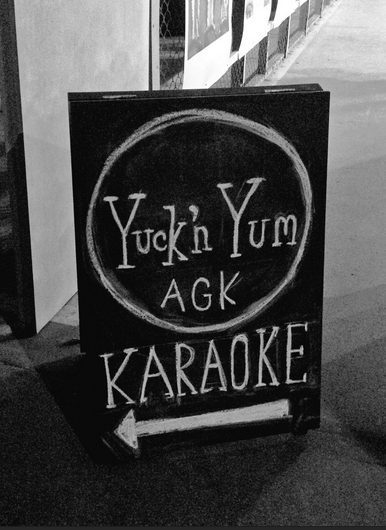 Yuck'n Yum
AGK
KARAOKE